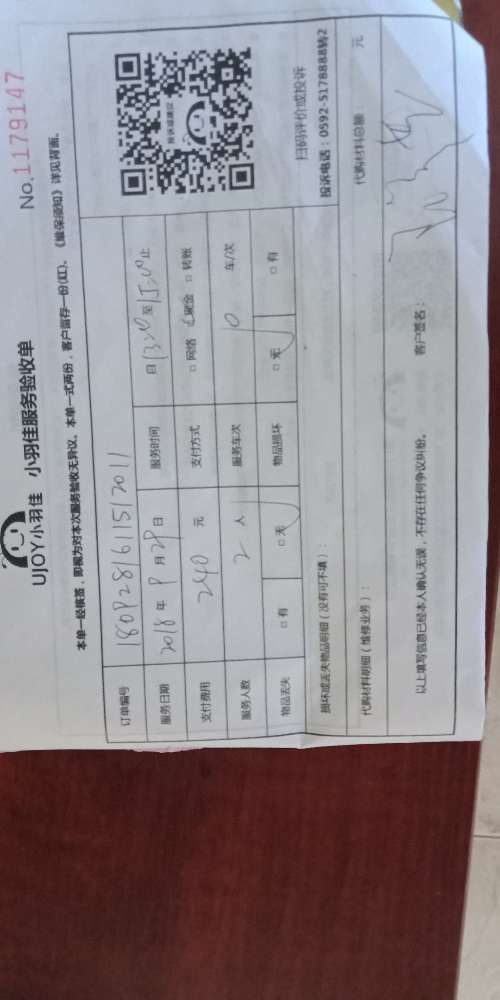 No.1179147
UJOY小羽佳 小羽佳服务验收单
本单一经核签，即视为对本次服务验收无异议。本单一式两份，客户留存一份(红)。《维保须知》详见背面。
订单编号 1809281611512011
服务日期 2018 年 9 月 29 日 服务时间 日 13:00 至 15:00 止
支付费用 240 元 支付方式 □ 网络 □ 现金 □ 转账
服务人数 2 人 服务车次 0 车/次
物品丢失 □ 有 □ 无 物品损坏 □ 无 □ 有
投诉或建议
扫码评价或投诉
损坏或丢失物品明细（没有可不填）：
投诉电话：0592-5178888转2
代购材料明细（维修业务）： 代购材料总额： 元
以上填写信息已经本人确认无误，不存在任何争议纠纷。 客户签名：